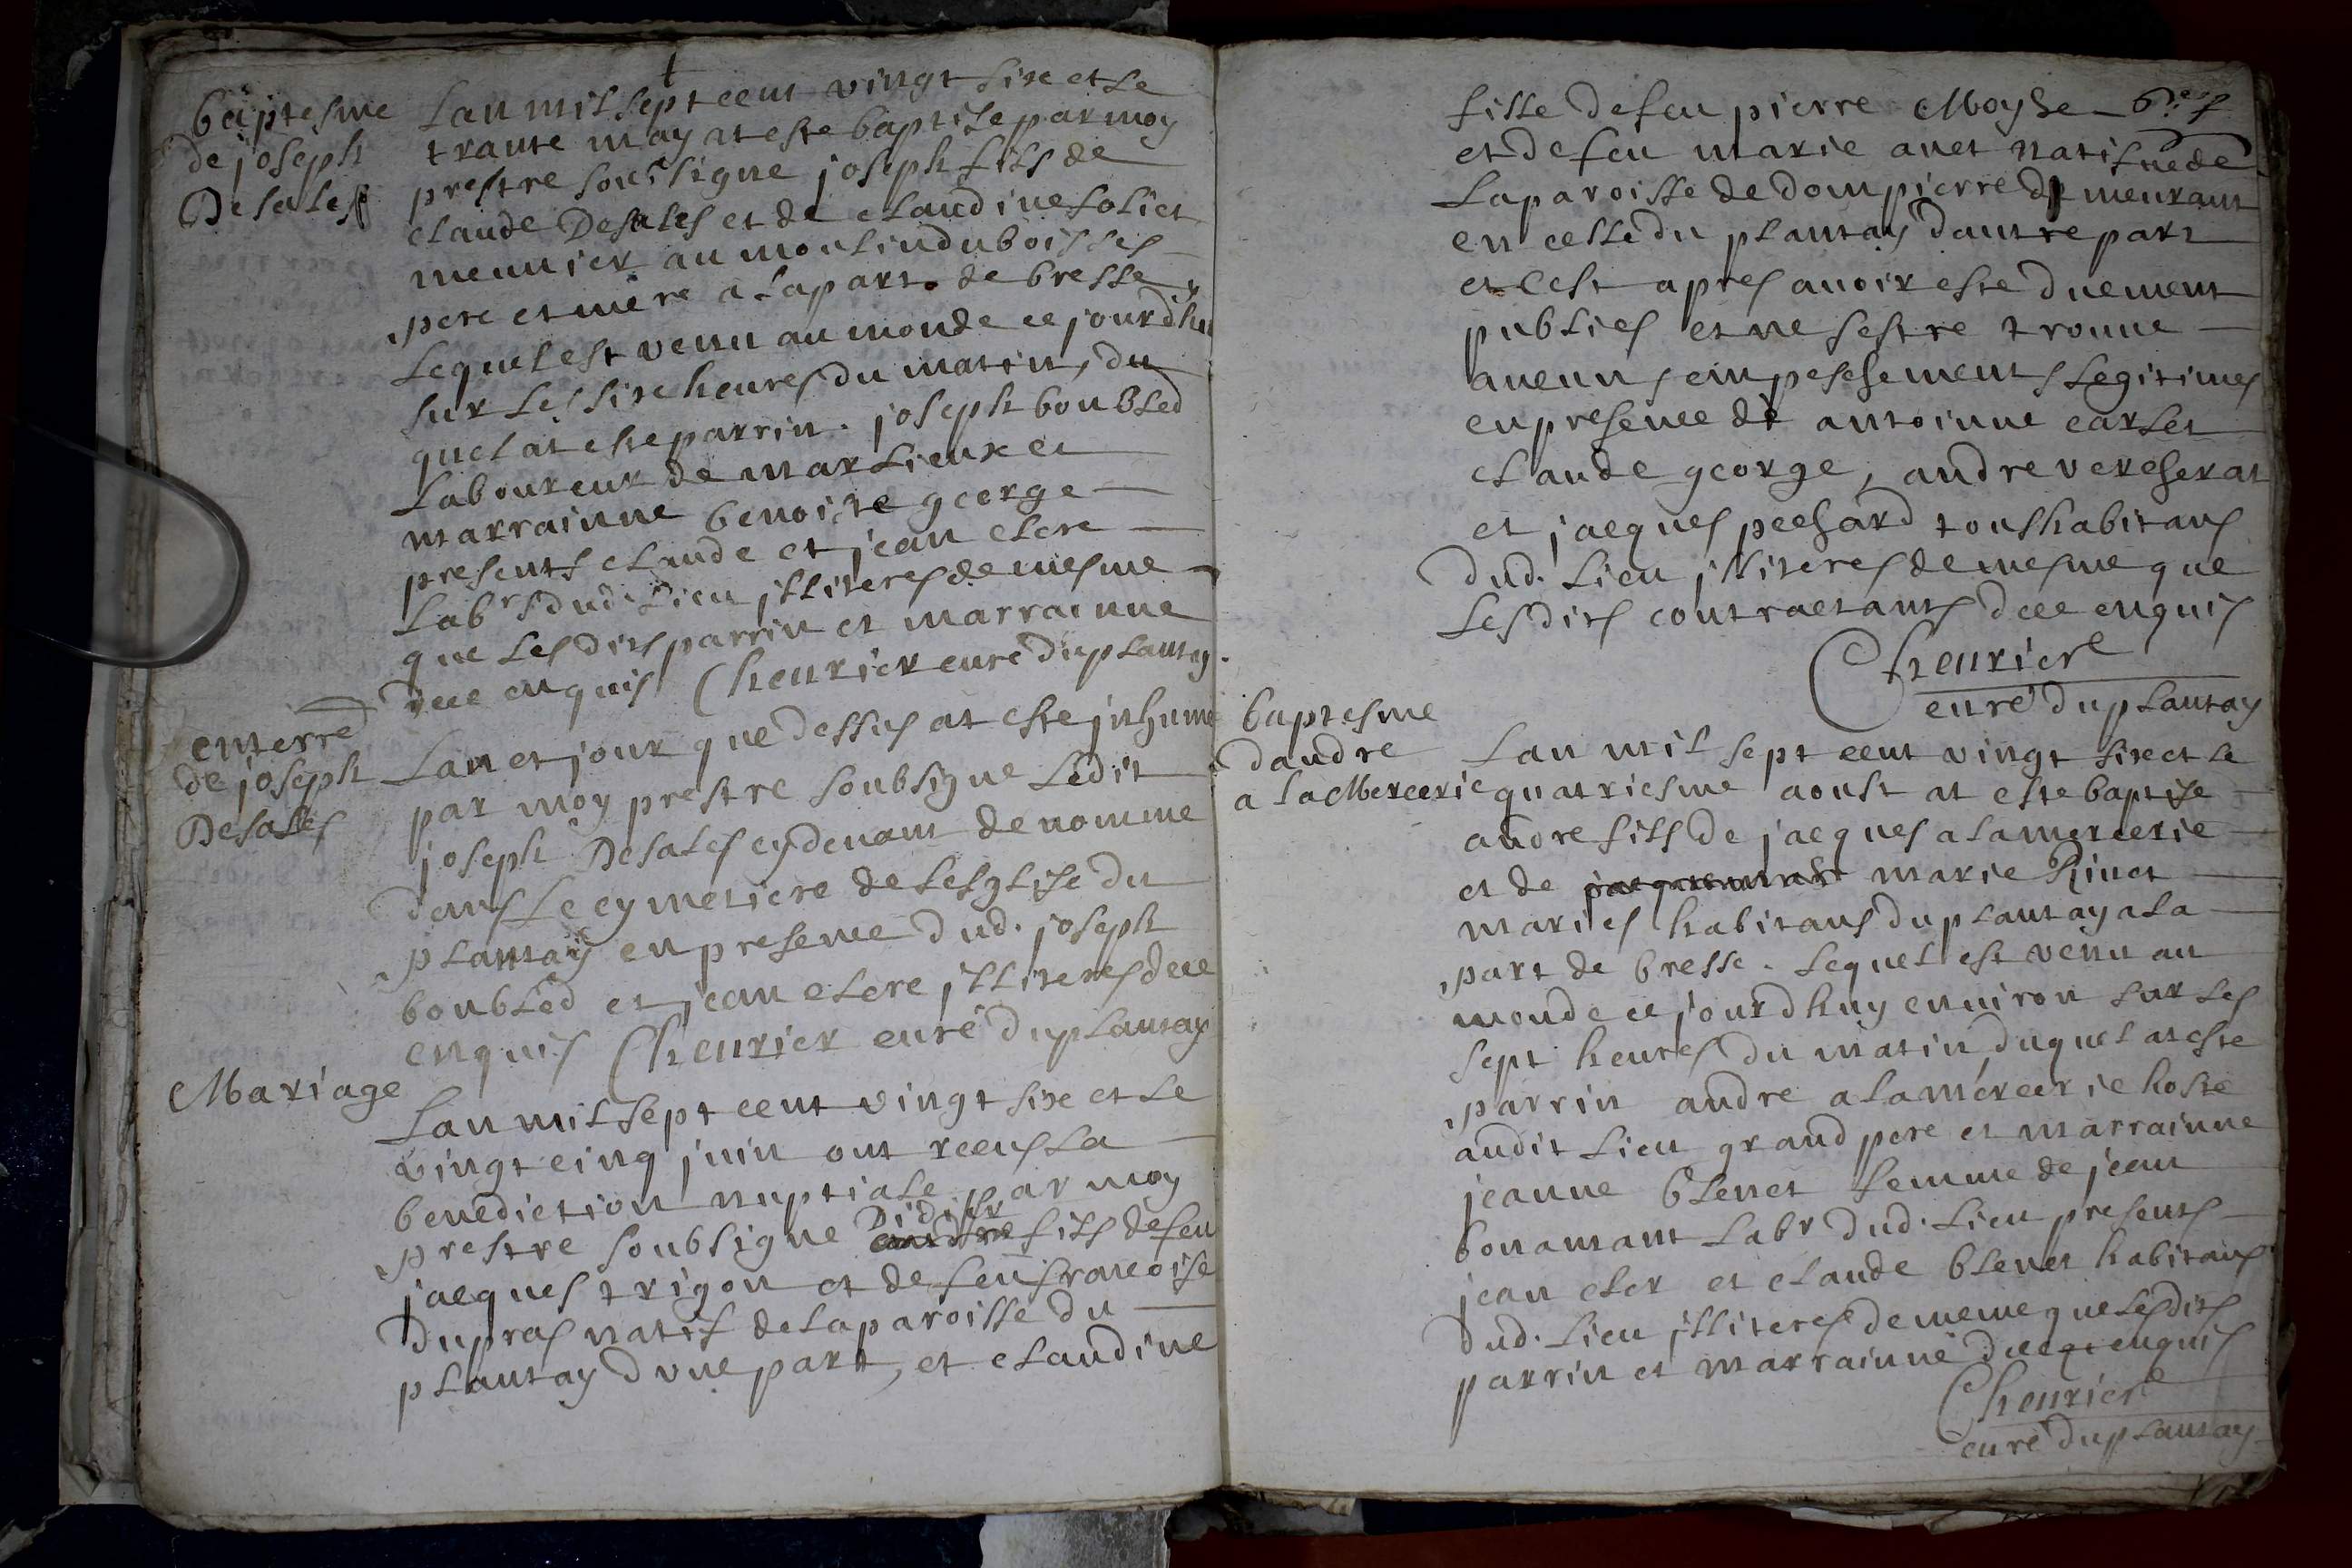 baptesme
de joseph
Desales
Lan mil sept cent vingt sixe et le
trante may at este baptise par moy
prestre soubsigne joseph fils de
claude Desales et de claudine foliet
meunier au moulin du boisses
pere et mere a la part de bresse
lequel est venu au monde ce jourdhu
sur les sixe heures du matin, du
quel at este parrin joseph boubled
laboureur de marlieux et
marrainne benoiste george
presents claude et jean clere
labrs dud. lieu jlliteres de mesme
que les dits parrin et marrainne
dece enquis Cheurier cure du plantay.
enterre
de joseph
Desales
Lan et jour que dessus at este jnhume
par moy prestre soubsigne ledit
joseph Desales cy devant denomme
dans le cymetiere de lesglise du
plantay en presence dud. joseph
boubled et jean clere jlliteres dece
enquis Cheurier curé du plantay
Mariage
Lan mil sept cent vingt sixe et le
vingt cinq juin ont receus la
benediction nuptiale par moy
prestre soubsigne Didier fils de feu
jacques trigon et de feu francoise
dupras natif de la paroisse du
plantay dvne part, et claudine
fille de feu pierre Moyse
et de feu marie anet natifue de
la paroisse de dompierre demeurant
en celle du plantay dautre part
et cest apres auoir este duement
publies et ne sestre trouue
aucuns empeschements legitimes
en presence de antoinne carlet
claude george, andre vercherat
et jacques pechard tous habitans
dud. lieu jlliteres de mesme que
lesdits contractants dece enquis
Cheurier
curé du plantay
baptesme
dandre
a la Mercerie
Lan mil sept cent vingt sixe et le
quatriesme aoust at este baptise
andre fils de jacques a la mercerie
et de marie Riuet
maries habitans du plantay a la
part de bresse. lequel est venu au
monde ce jourdhuy enuiron sur les
sept heures du matin, duquel at este
parrin andre a la mercerie hoste
audit lieu grand pere et marrainne
jeanne blenet femme de jean
bonamant labr dud. lieu presents
jean cler et claude blenet habitans
dud. lieu jlliteres de meme que lesdits
parrin et marrainne dece enquis
Cheurier
curé du plantay